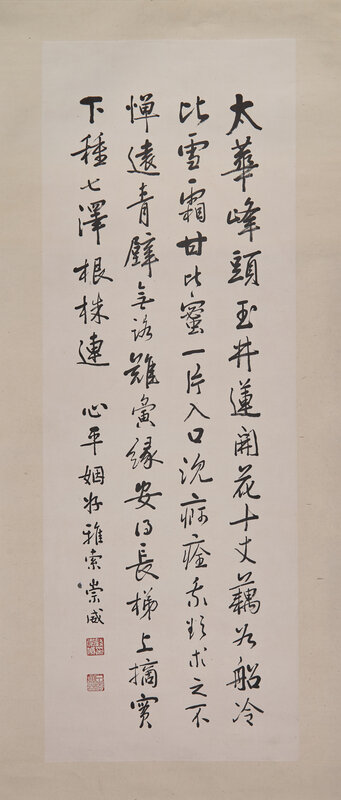 太華峰頭玉井蓮開花十丈藕如船冷
比雪霜甘比蜜一片入口沈痾痊我欲求之不
憚遠青壁無路難夤緣安得長梯上摘實
下種七澤根株連
心平姻好雅索 崇威